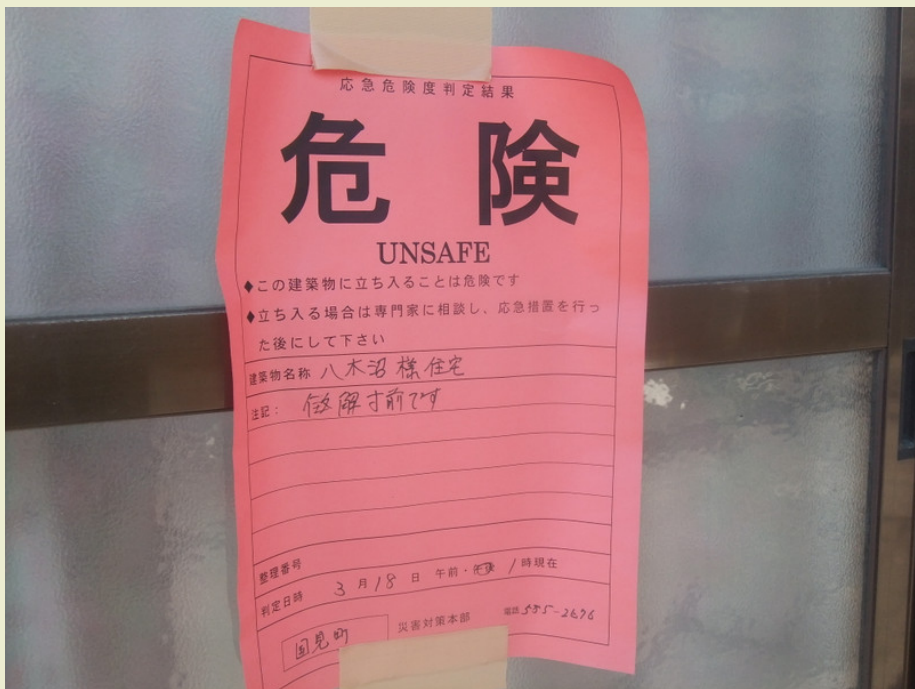 応急危険度判定結果
危険
UNSAFE
◆この建築物に立ち入ることは危険です
◆立ち入る場合は専門家に相談し、応急措置を行っ
た後にして下さい
建築物名称 八木沼様住宅
注記: 解寸前です
整理番号
判定日時 3月18日 午前・午後 1時現在
国見町 災害対策本部 電話 585-2676